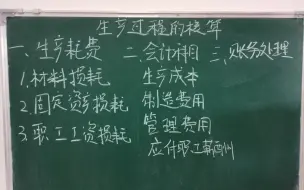 生产过程的核算
一、生产耗费 二、会计科目 三、账务处理
1.材料损耗 生产成本
2.固定资产损耗 制造费用
3.职工工资损耗 管理费用
应付职工薪酬